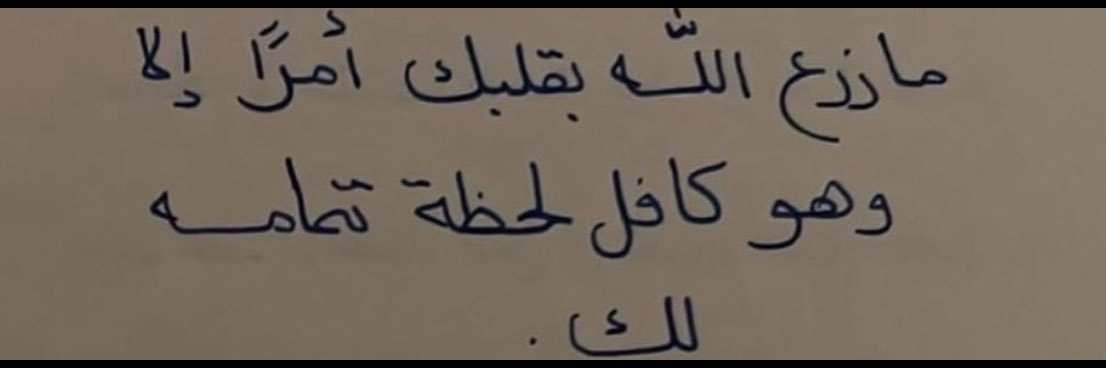 ما زرع اللّه بقلبك أمرًا إلا
وهو كافل لحظة تمامه
لك .